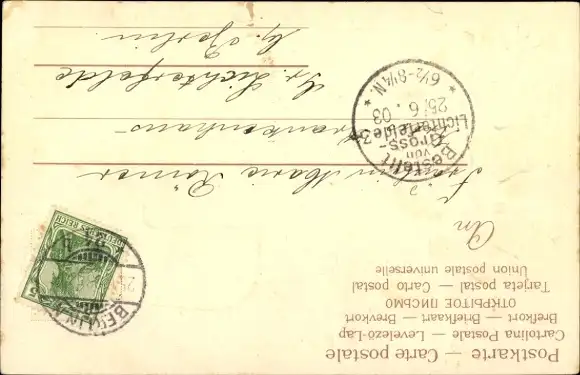 Postkarte — Carte postale
Cartolina Postale — Levelező-Lap
Brefkort — Briefkaart — Brevkort
ОТКРЫТОЕ ПИСЬМО
Tarjeta postal — Carto postal
Union postale universelle
An
Fräulein Marie Römer
Krankenhaus
Gr. Lichterfelde
b. Berlin
Bestellt
vom
Gross-
Lichterfelde 3
25/6. 03
* 6½-8¼N. *
DEUTSCHES REICH
5
BERLIN